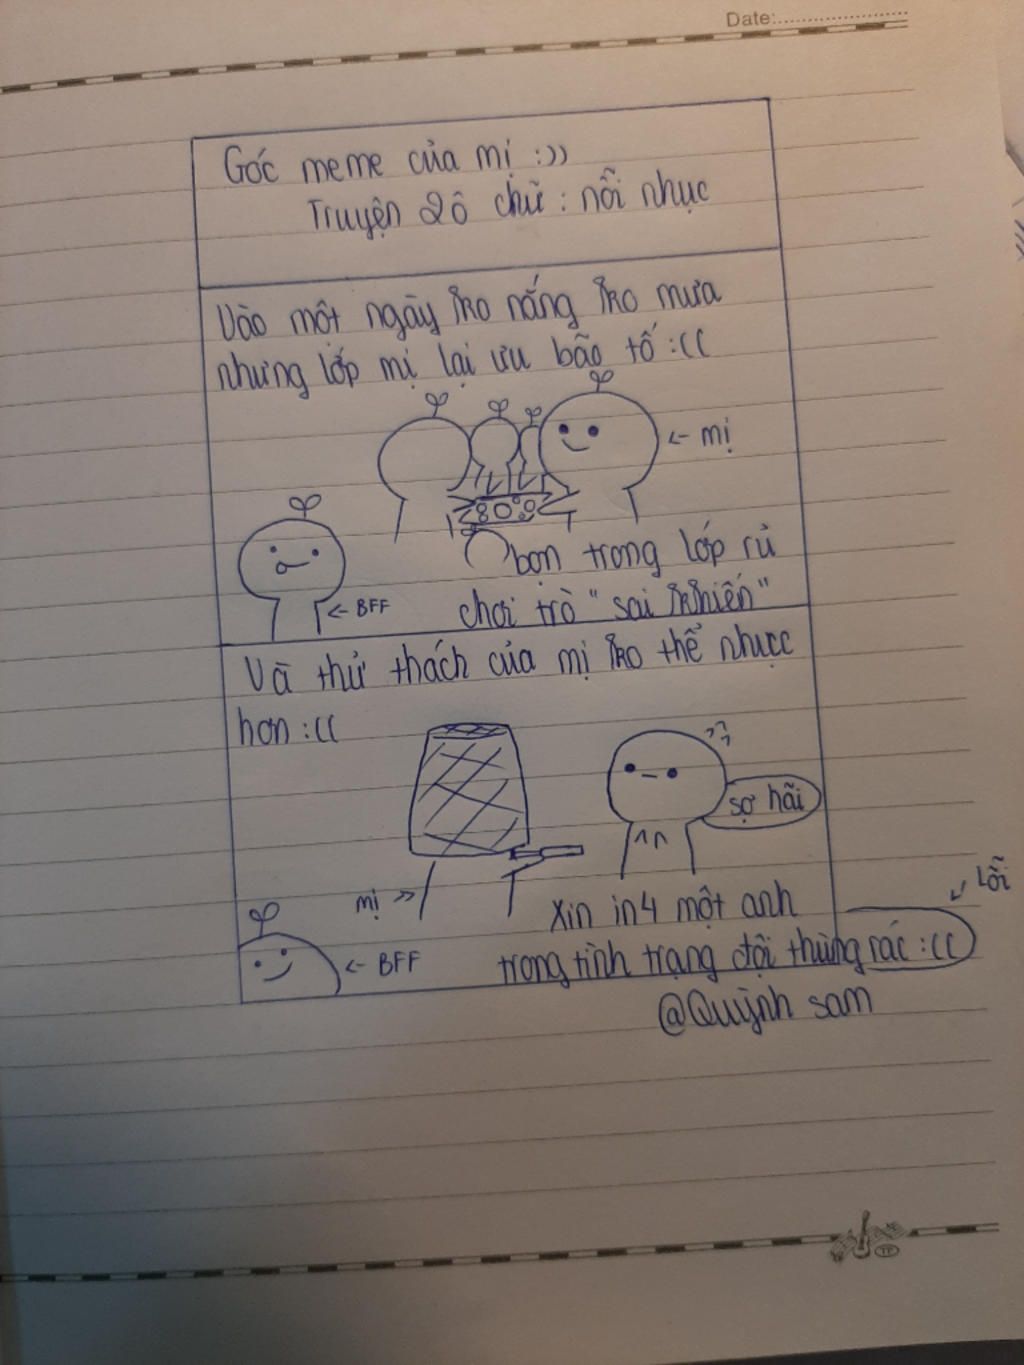 Date:
Góc meme của mị :))
Truyện 2 ô chữ : nỗi nhục
Vào một ngày ko nắng ko mưa
nhưng lớp mị lại ưu bão tố :((
<- mị
<- BFF
bọn trong lớp rủ
chơi trò "sai khiến"
Và thử thách của mị ko thể nhụcc
hơn :((
sợ hãi
mị >>
Xin in4 một anh
trong tình trạng đội thùng rác :((
Lỗi
<- BFF
@Quỳnh sam
TP